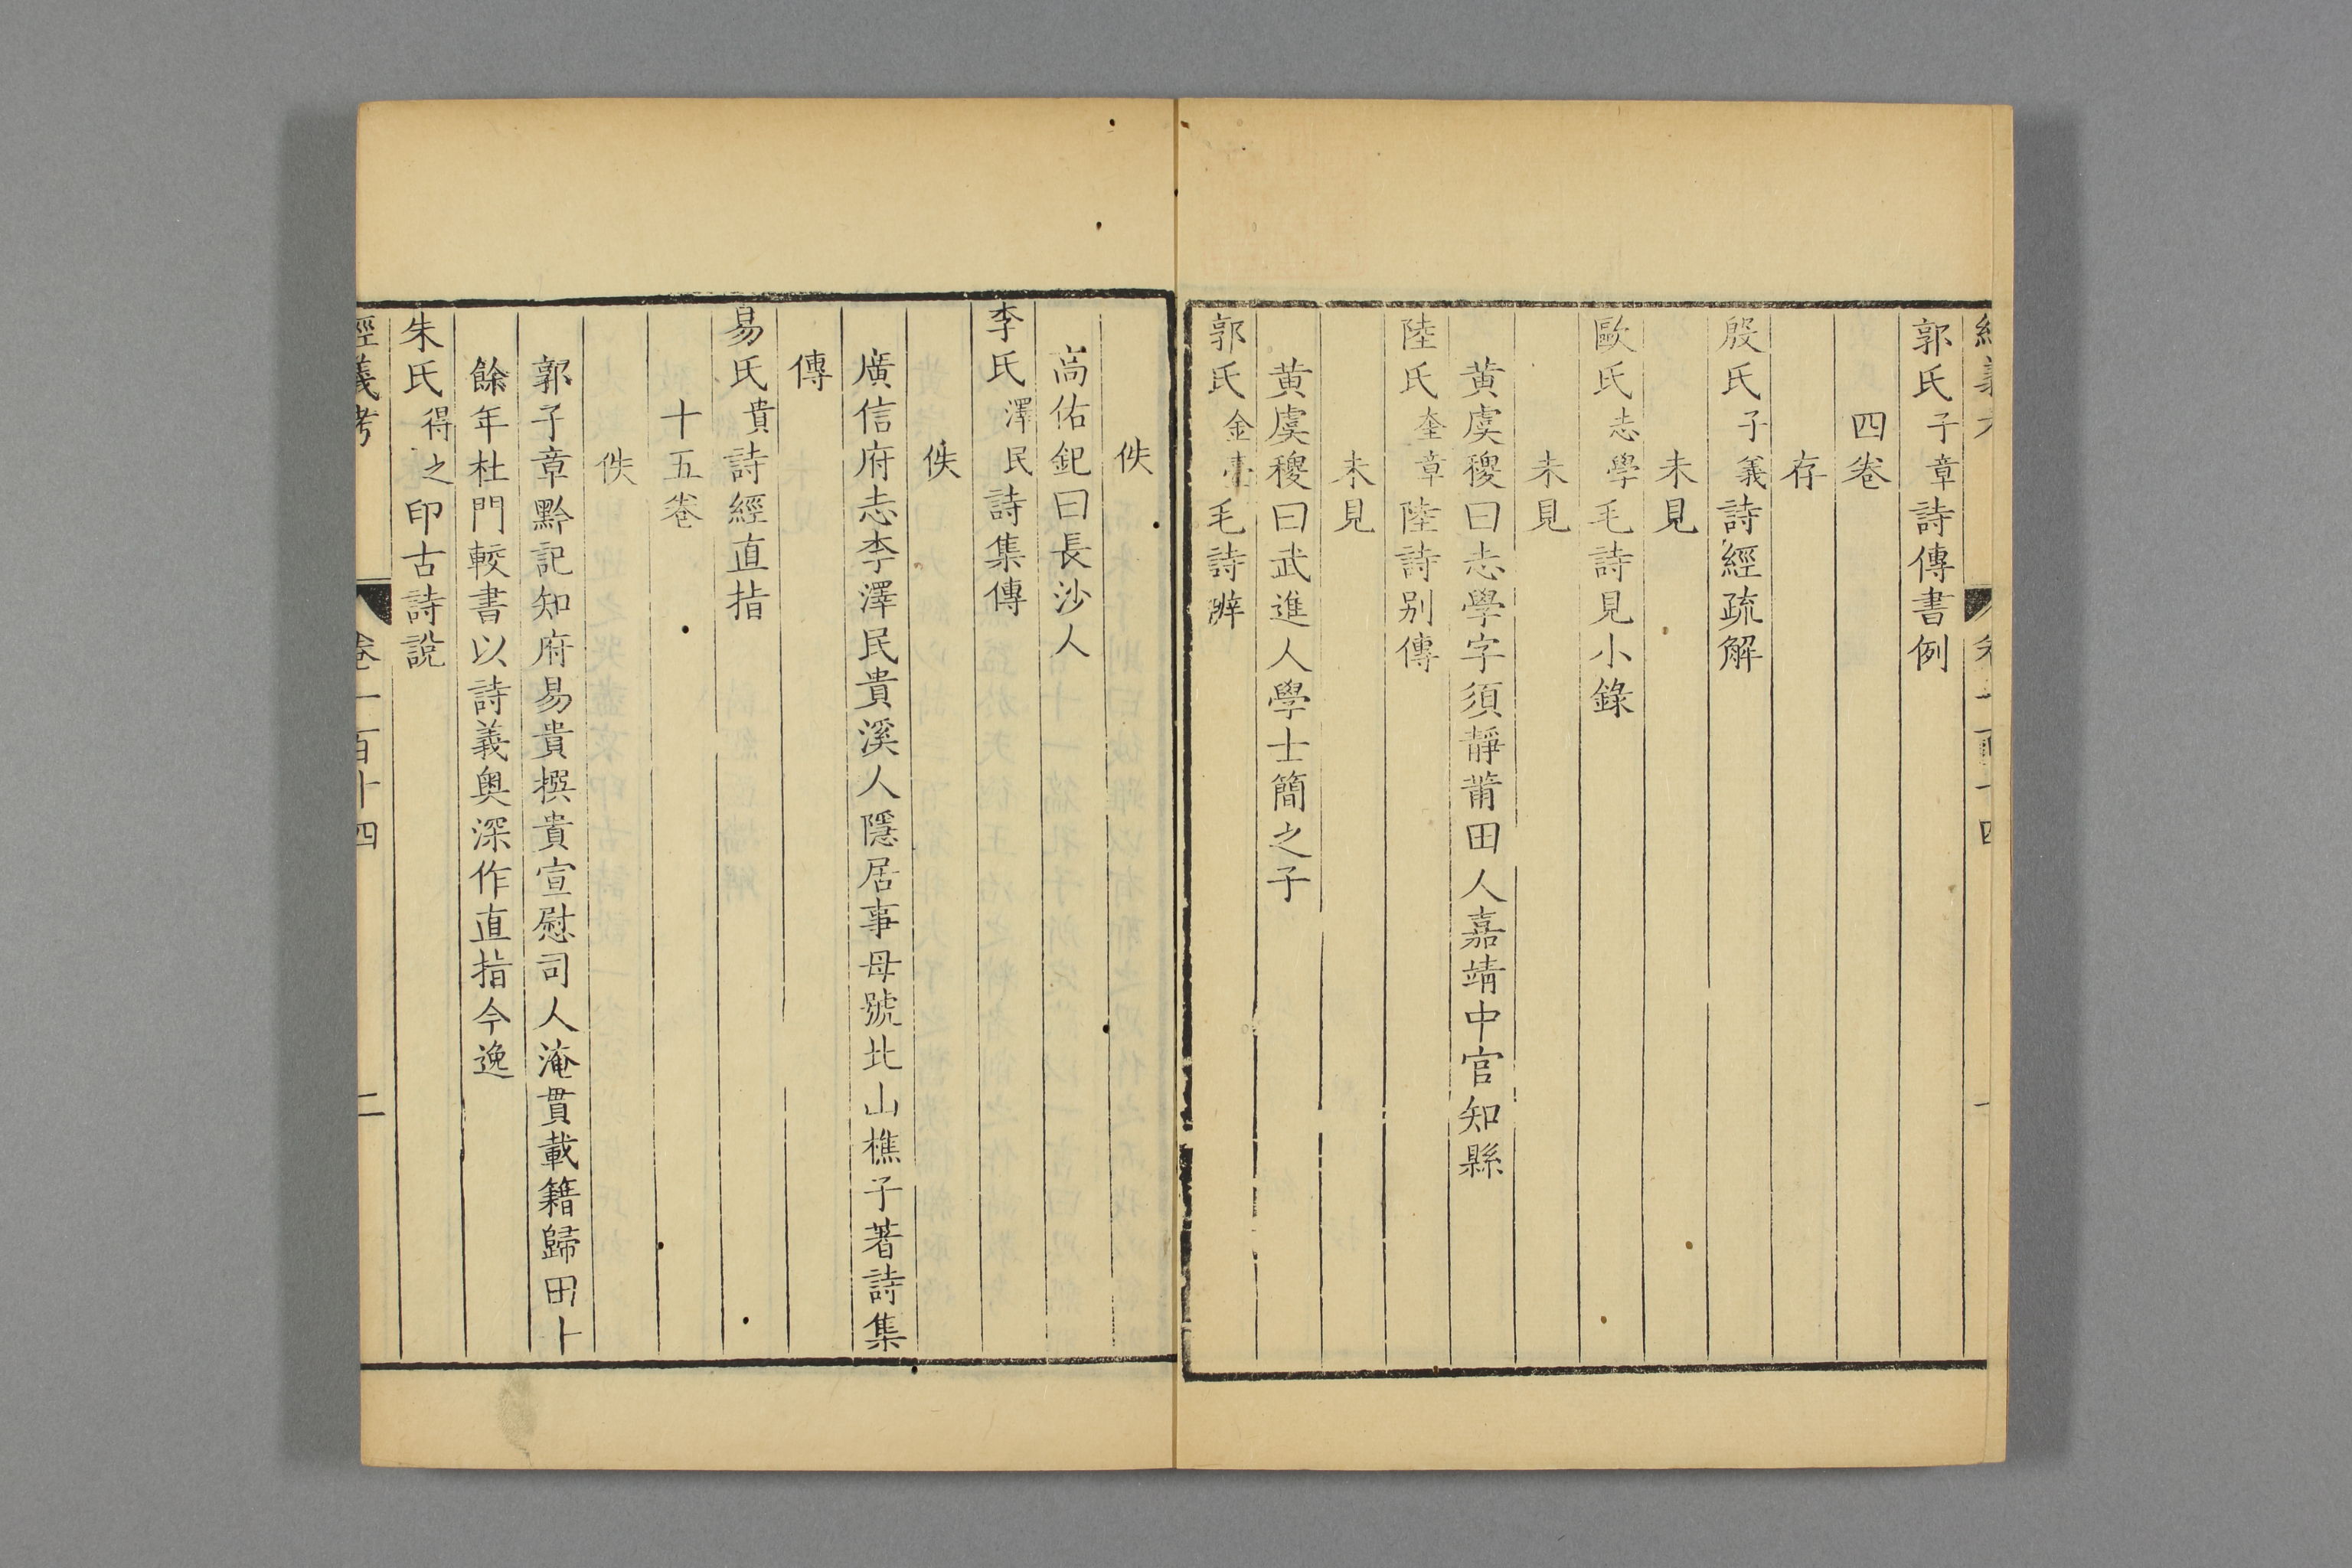 郭氏子章詩傳書例
四卷
存
殷氏子義詩經疏解
未見
歐氏志學毛詩見小錄
未見
黄虞稷曰志學字須靜莆田人嘉靖中官知縣
陸氏奎章陸詩别傳
未見
黄虞稷曰武進人學士簡之子
郭氏金臺毛詩辨
佚
高佑釲曰長沙人
李氏澤民詩集傳
佚
廣信府志李澤民貴溪人隱居事母號北山樵子著詩集
傳
易氏貴詩經直指
十五卷
佚
郭子章黔記知府易貴撰貴宣慰司人淹貫載籍歸田卜
餘年杜門較書以詩義奥深作直指今逸
朱氏得之印古詩說
經義考 卷一百十四 二